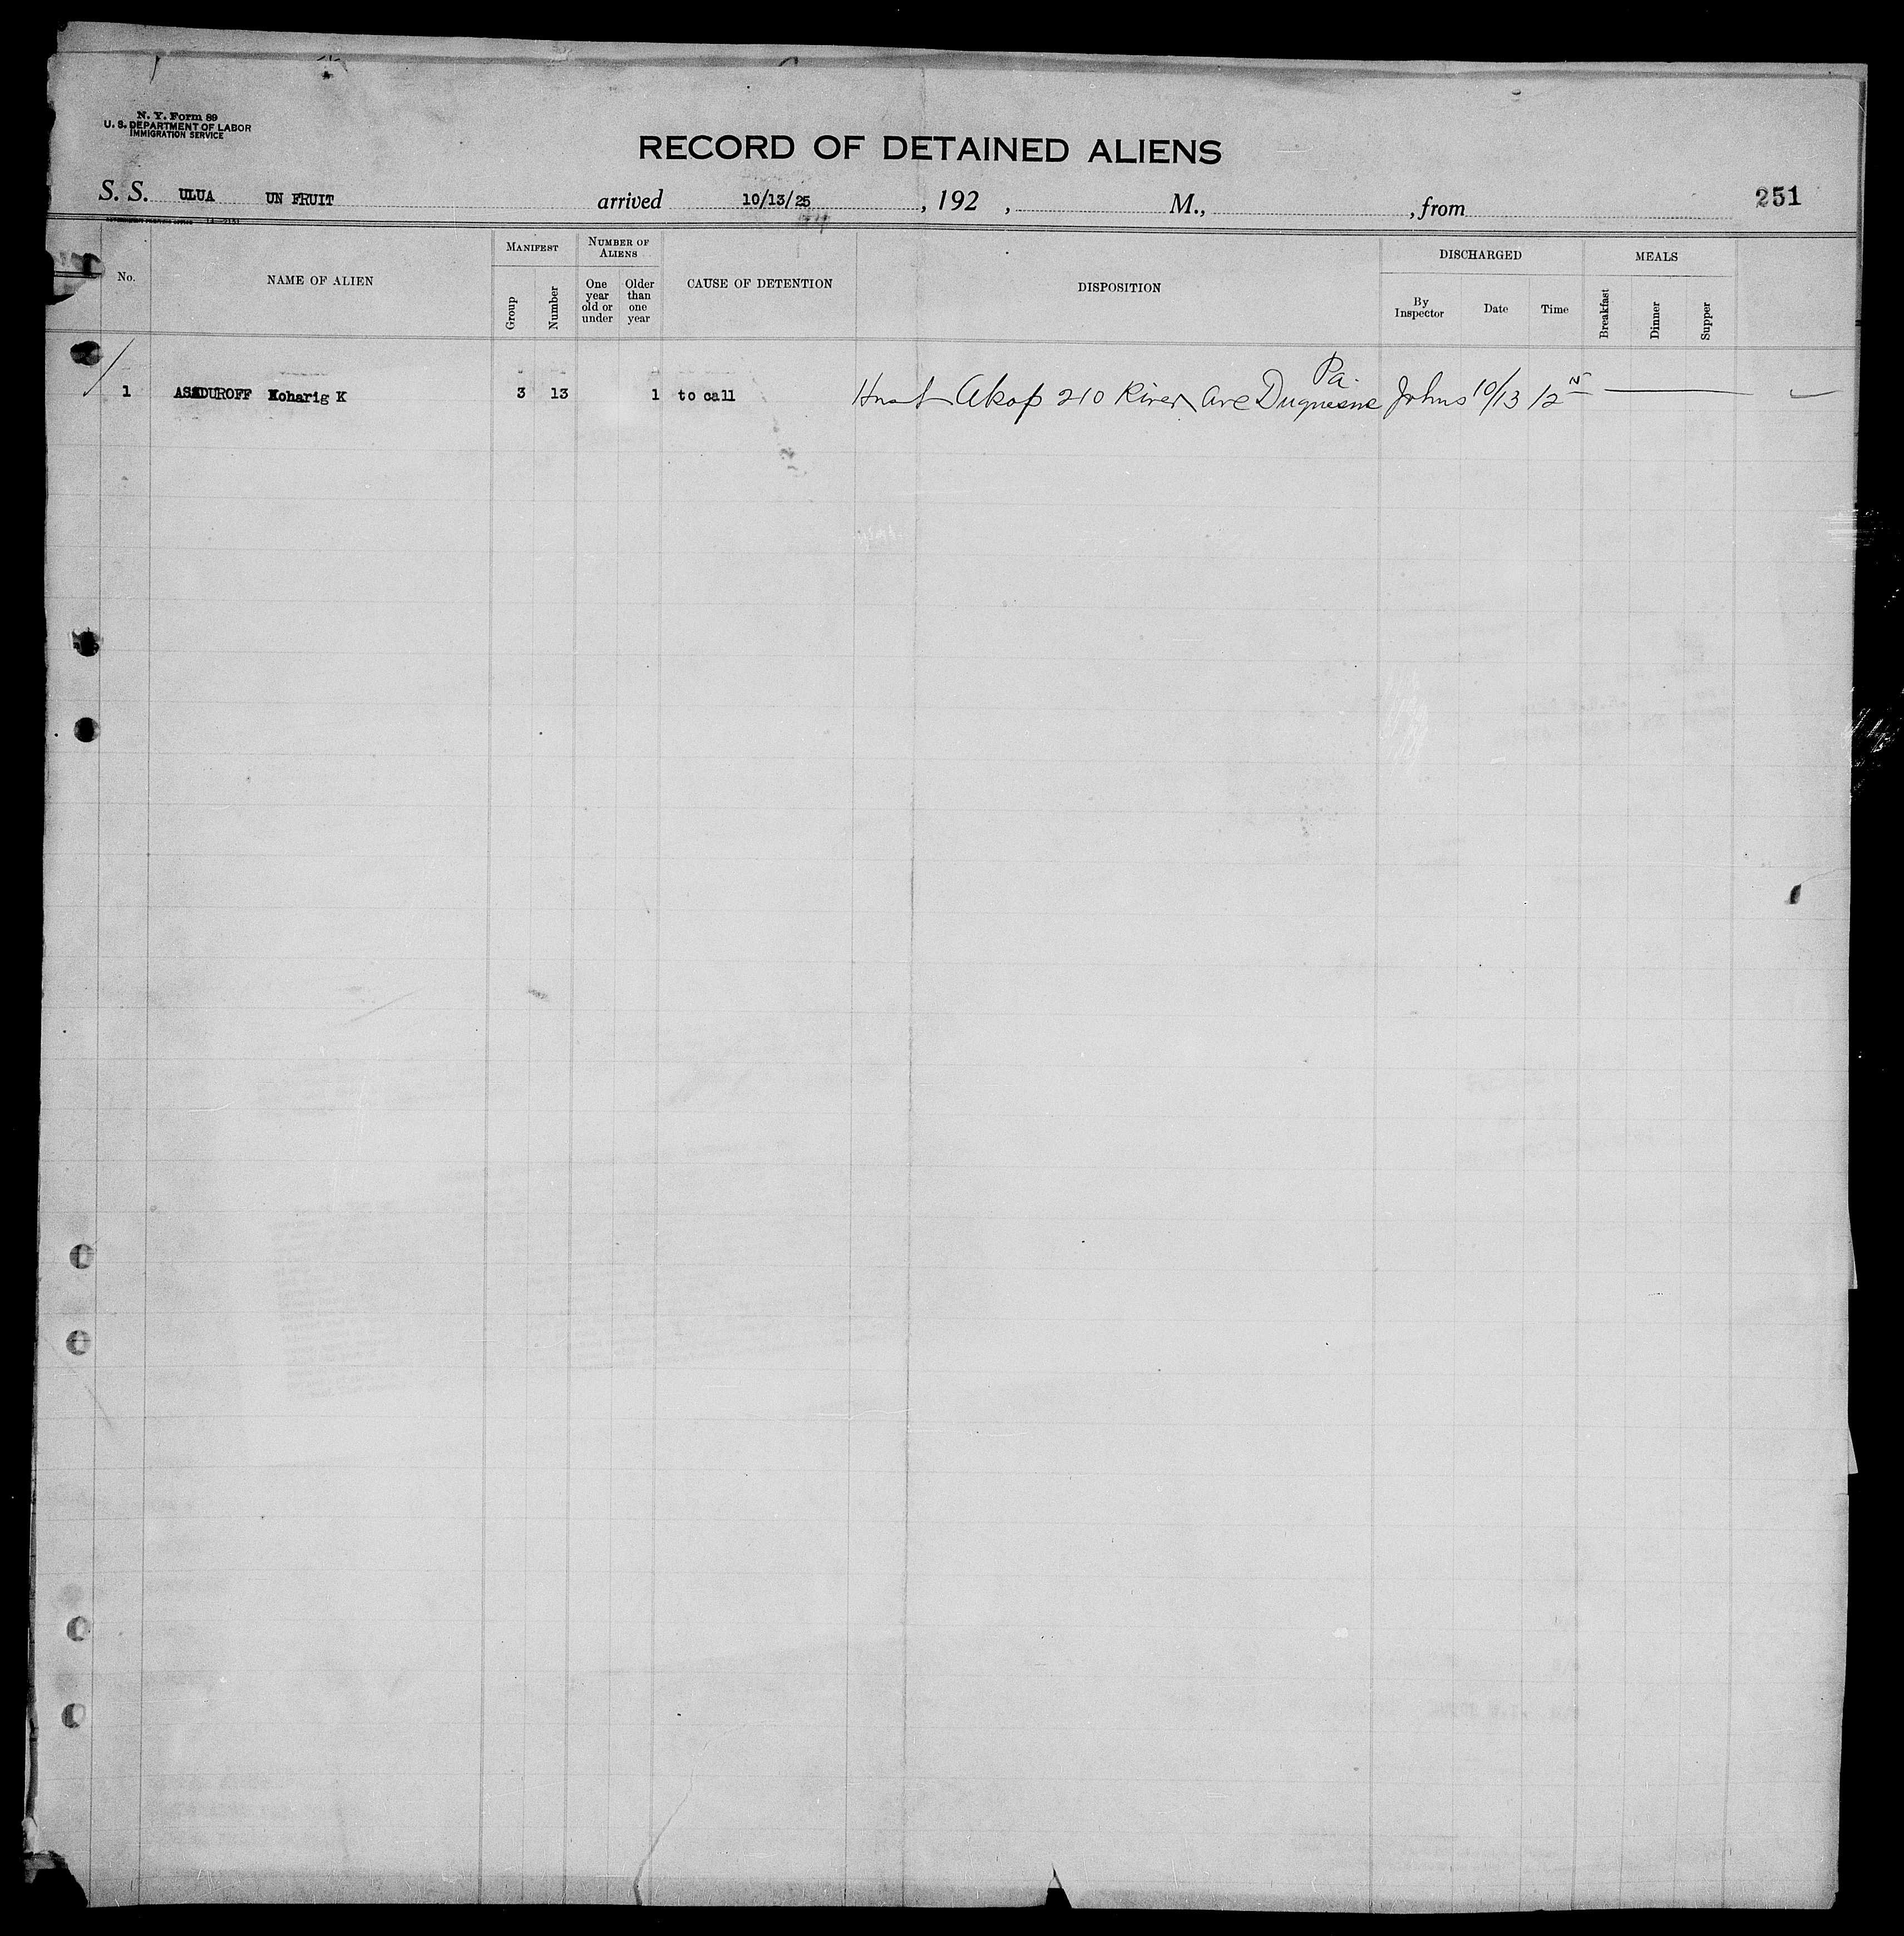 N. Y. Form 89
U. S. DEPARTMENT OF LABOR
IMMIGRATION SERVICE
RECORD OF DETAINED ALIENS
S. S. ULUA UN FRUIT arrived 10/13/25, 192 , M., , from 251
No.
NAME OF ALIEN
MANIFEST
Group
Number
NUMBER OF ALIENS
One year old or under
Older than one year
CAUSE OF DETENTION
DISPOSITION
DISCHARGED
By Inspector
Date
Time
MEALS
Breakfast
Dinner
Supper
Pa.
1 ASADUROFF Koharig K 3 13 1 to call Akop 210 River Ave Duquesne Johns 10/13 12 N